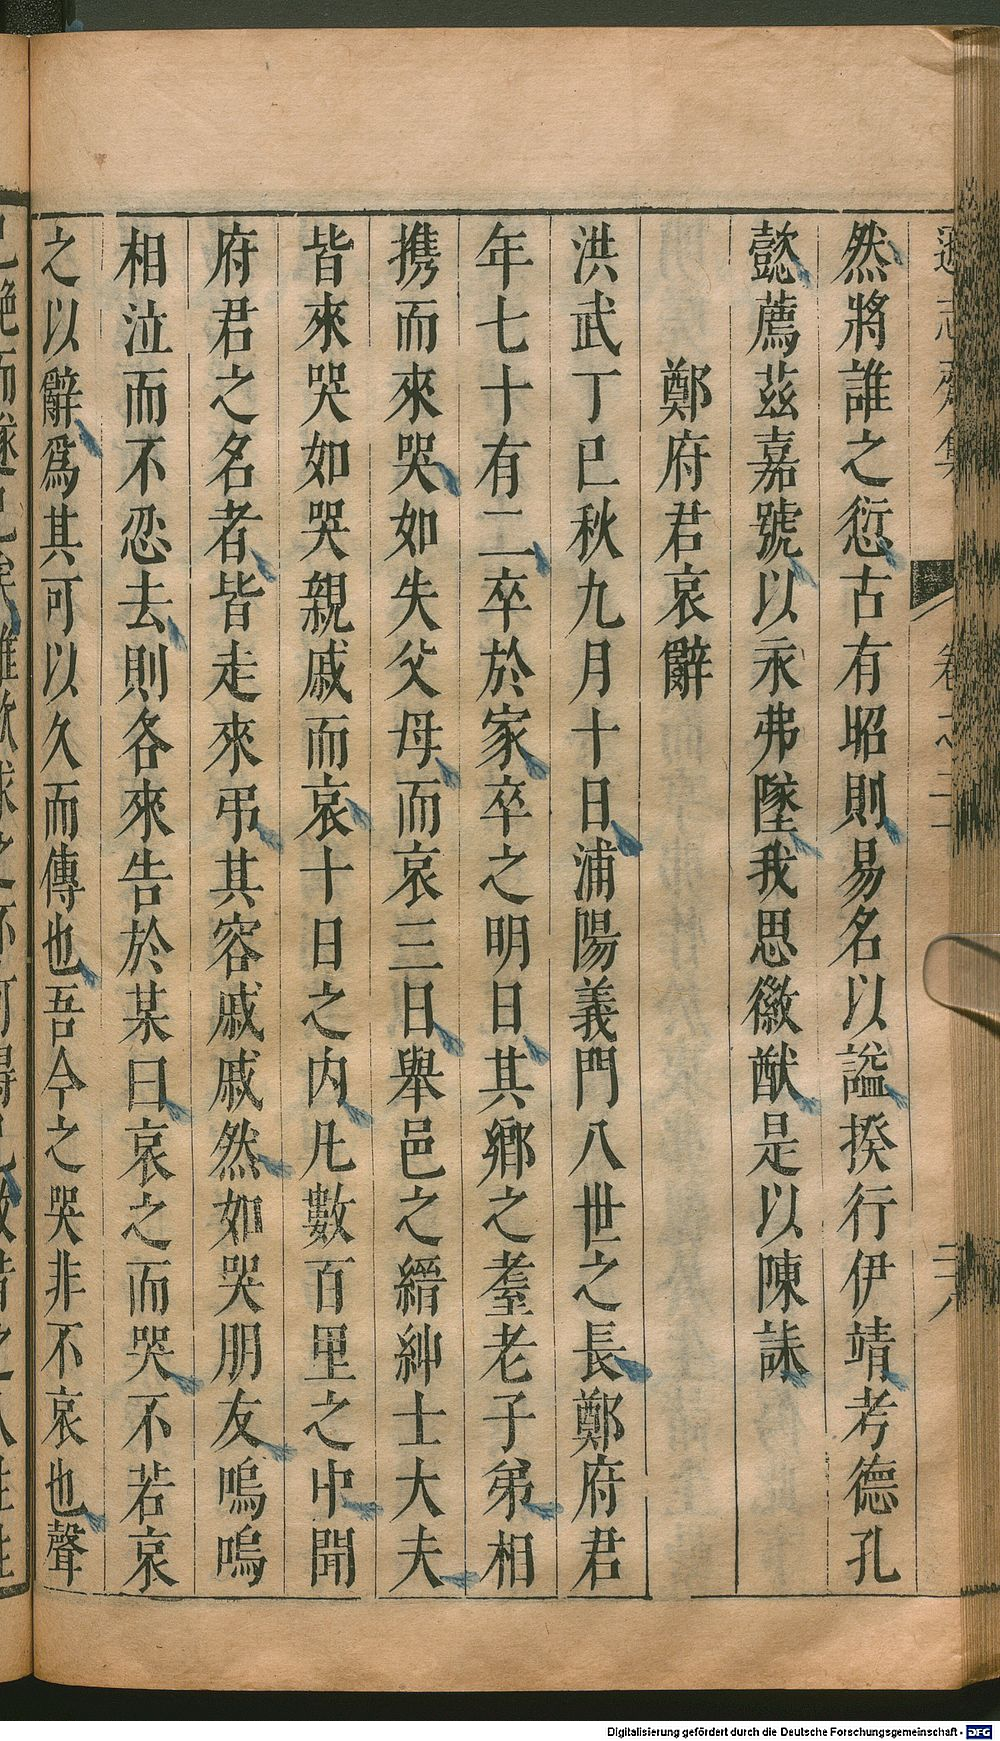 遜志齋集
卷之二十
二八
然將誰之愆古有昭則易名以謚揆行伊靖考德孔
懿薦茲嘉號以永弗墜我思徽猷是以陳誄
鄭府君哀辭
洪武丁巳秋九月十日浦陽義門八世之長鄭府君
年七十有二卒於家卒之明日其鄉之耋老子弟相
携而來哭如失父母而哀三日舉邑之縉紳士大夫
皆來哭如哭親戚而哀十日之内凡數百里之中聞
府君之名者皆走來弔其容戚戚然如哭朋友嗚嗚
相泣而不忍去則各來告於某曰哀之而哭不若哀
之以辭爲其可以久而傳也吾今之哭非不哀也聲
Digitalisierung gefördert durch die Deutsche Forschungsgemeinschaft - DFG